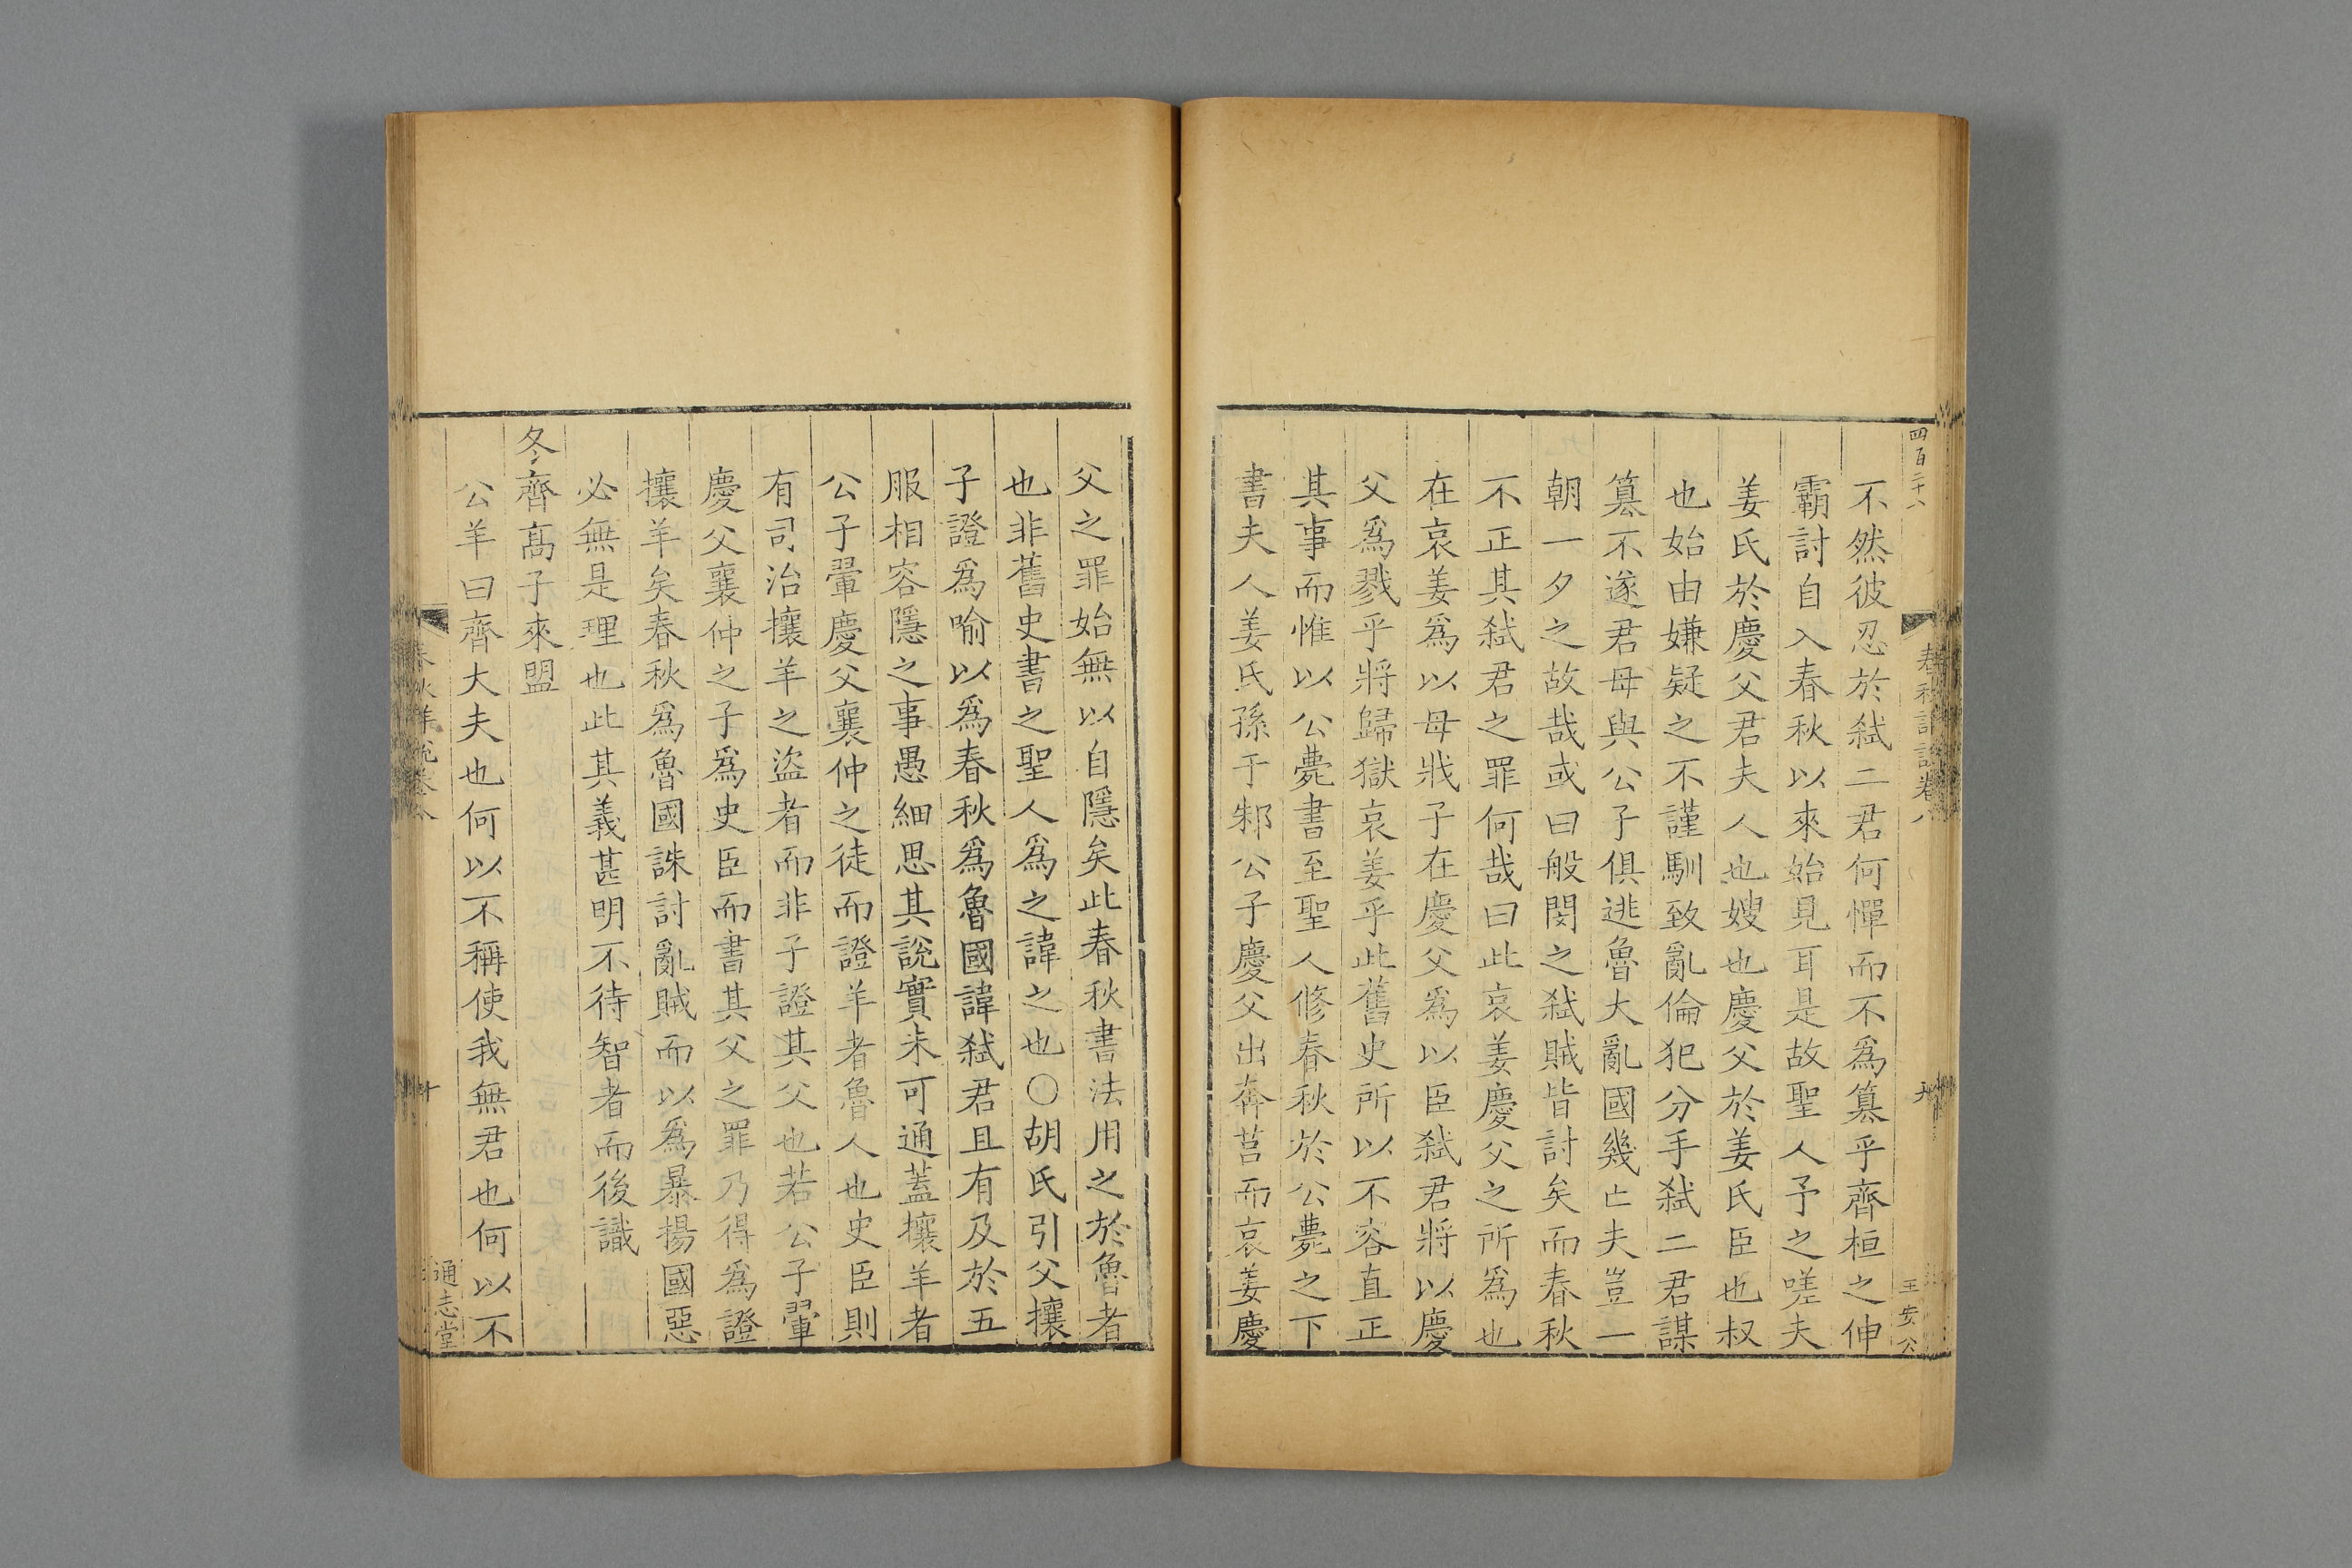 四百二十八
春秋詳說卷八
九
王安公
不然彼忍於弑二君何憚而不爲篡乎齊桓之伸
霸討自入春秋以來始見耳是故聖人予之嗟夫
姜氏於慶父君夫人也嫂也慶父於姜氏臣也叔
也始由嫌疑之不謹馴致亂倫犯分手弑二君謀
篡不遂君母與公子俱逃魯大亂國幾亡夫豈一
朝一夕之故哉或曰般閔之弑賊皆討矣而春秋
不正其弑君之罪何哉曰此哀姜慶父之所爲也
在哀姜爲以母戕子在慶父爲以臣弑君將以慶
父爲戮乎將歸獄哀姜乎此舊史所以不容直正
其事而惟以公薨書至聖人修春秋於公薨之下
書夫人姜氏孫于邾公子慶父出奔莒而哀姜慶
父之罪始無以自隱矣此春秋書法用之於魯者
也非舊史書之聖人爲之諱之也〇胡氏引父攘
子證爲喻以爲春秋爲魯國諱弑君且有及於五
服相容隱之事愚細思其說實未可通蓋攘羊者
公子翬慶父襄仲之徒而證羊者魯人也史臣則
有司治攘羊之盜者而非子證其父也若公子翬
慶父襄仲之子爲史臣而書其父之罪乃得爲證
攘羊矣春秋爲魯國誅討亂賊而以爲暴揚國惡
必無是理也此其義甚明不待智者而後識
冬齊高子來盟
公羊曰齊大夫也何以不稱使我無君也何以不
春秋詳說卷八
十
通志堂